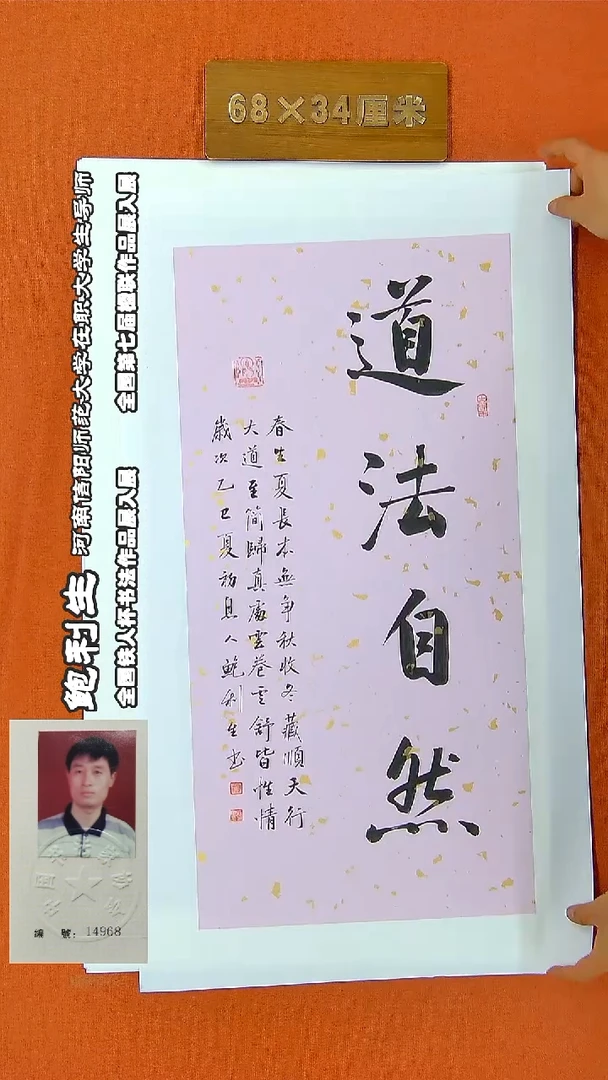 68×34厘米
道法自然
春生夏長本無争秋收冬藏順天行
大道至简歸真處雲卷雲舒皆性情
歲次乙巳夏初息人鲍利生书
鲍利生
河南信阳师范大学在职大学生导师
全国铁人杯书法作品展入展
全国第七届楹联作品展入展
編 號：14968